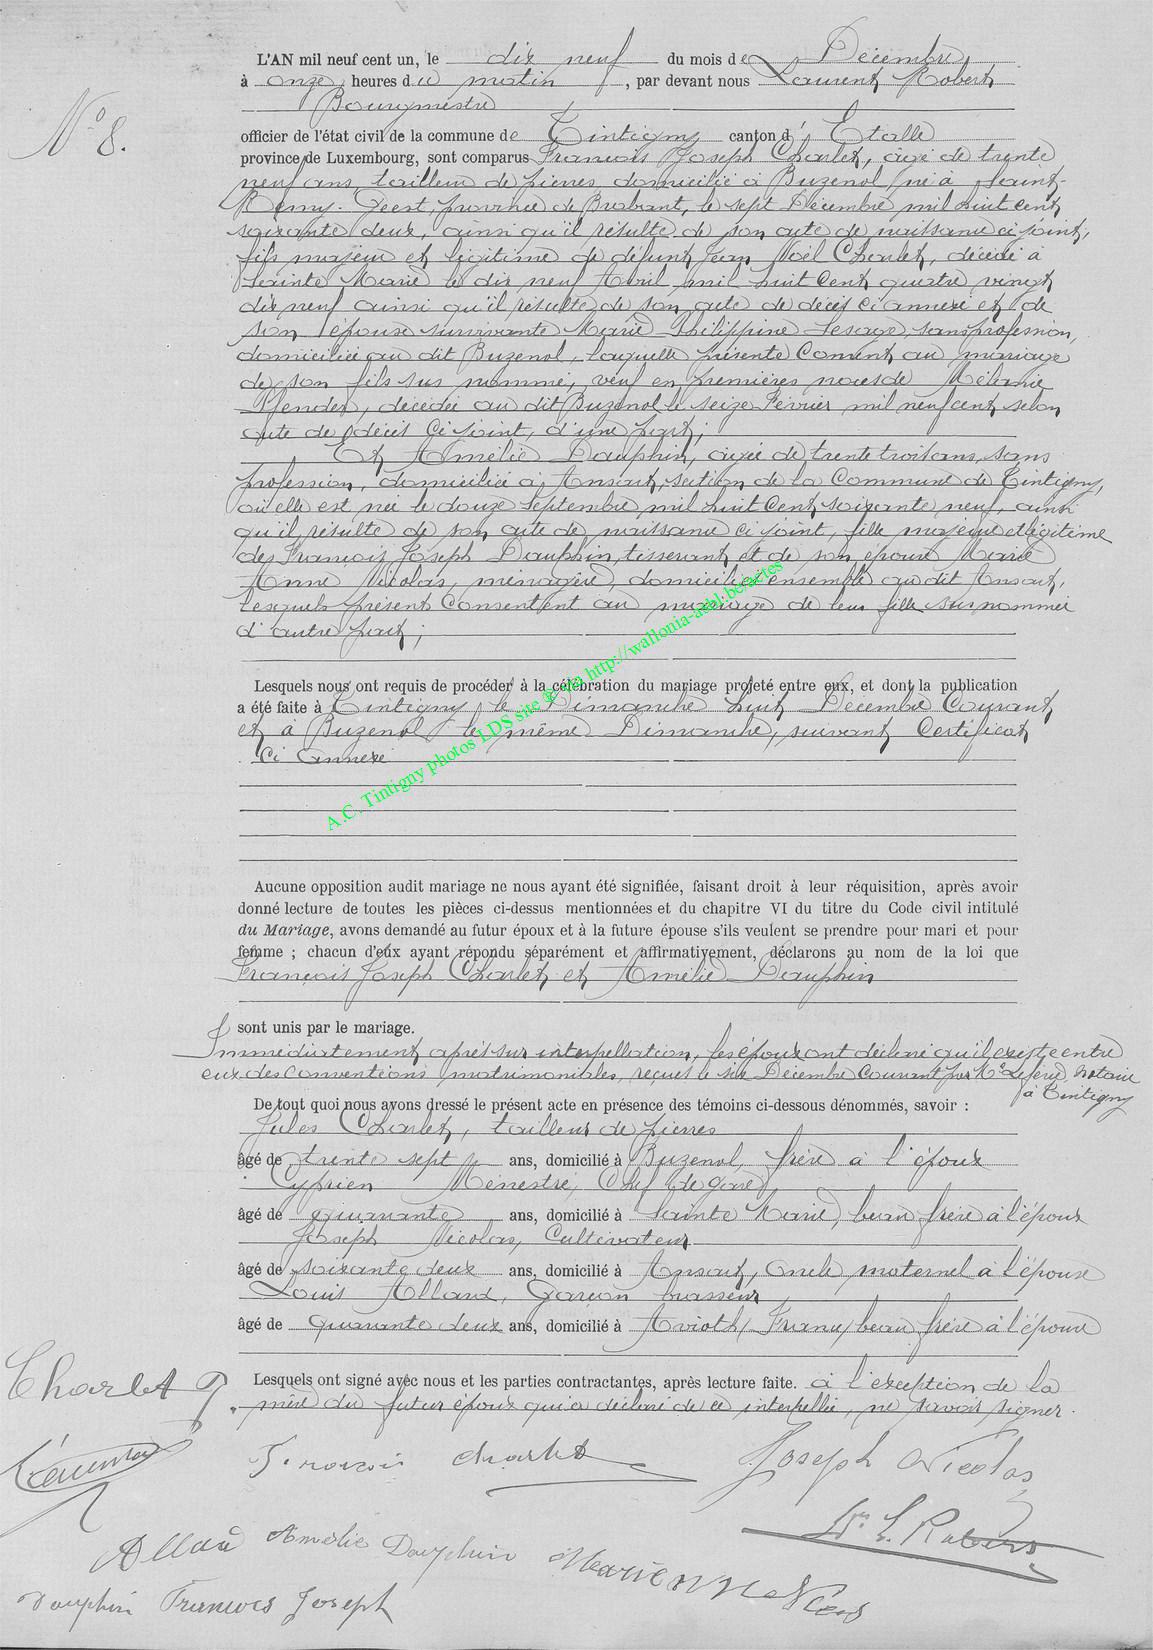 L'AN mil neuf cent un, le dix neuf du mois de Décembre
à onze heures du matin, par devant nous Laurent Robert
Bourgmestre
N° 8.
officier de l'état civil de la commune de Tintigny canton d'Etalle
province de Luxembourg, sont comparus François Joseph Charlet, âgé de trente
neuf ans, tailleur de pierres, domicilié à Buzenol, né à Saint-
Remy-Geest, province de Brabant, le sept Décembre mil huit cent
soixante deux, ainsi qu'il résulte de son acte de naissance ci joint,
fils majeur et légitime de défunt Jean Noël Charlet, décédé à
Sainte Marie le dix neuf Avril mil huit cent quatre vingt
dix neuf ainsi qu'il résulte de son acte de décès ci annexé et de
son épouse survivante Marie Philippine Lesage, sans profession,
domiciliée au dit Buzenol, laquelle présente consent au mariage
de son fils sus nommé, veuf en premières noces de Mélanie
décédée au dit Buzenol le seize Février mil neuf cent selon
acte de décès ci joint, d'une part;
Et Amélie Dauphin, âgée de trente trois ans, sans
profession, domiciliée à Ansart, section de la Commune de Tintigny,
où elle est née le douze Septembre mil huit cent soixante neuf, ainsi
qu'il résulte de son acte de naissance ci joint, fille majeure et légitime
de François Joseph Dauphin, tisserant et de son épouse Marie
Anne Nicolas, ménagère, domiciliés ensemble au dit Ansart,
lesquels présent consentent au mariage de leur fille sus nommée
d'autre part;
Lesquels nous ont requis de procéder à la célébration du mariage projeté entre eux, et dont la publication
a été faite à Tintigny, le Dimanche huit Décembre Courant
et à Buzenol le même Dimanche, suivant certificat
ci annexé
A.C. Tintigny photos LDS site @ via http://wallonia-asbl.be/actes
Aucune opposition audit mariage ne nous ayant été signifiée, faisant droit à leur réquisition, après avoir
donné lecture de toutes les pièces ci-dessus mentionnées et du chapitre VI du titre du Code civil intitulé
du Mariage, avons demandé au futur époux et à la future épouse s'ils veulent se prendre pour mari et pour
femme ; chacun d'eux ayant répondu séparément et affirmativement, déclarons au nom de la loi que
François Joseph Charlet et Amélie Dauphin
sont unis par le mariage.
Immédiatement après sur interpellation, les époux ont déclaré qu'il existe entre
eux des conventions matrimoniales, reçues le six Décembre courant par Me notaire
à Tintigny
De tout quoi nous avons dressé le présent acte en présence des témoins ci-dessous dénommés, savoir :
Jules Charlet, tailleur de pierres
âgé de trente sept ans, domicilié à Buzenol, frère à l'époux
Cyprien Menestré, Chef de gare
âgé de quarante ans, domicilié à Sainte Marie, beau frère à l'époux
Joseph Nicolas, Cultivateur
âgé de soixante deux ans, domicilié à Ansart, oncle maternel à l'épouse
Louis Allaux, Garçon brasseur
âgé de quarante deux ans, domicilié à Avioth (France) beau frère à l'épouse
Lesquels ont signé avec nous et les parties contractantes, après lecture faite. à l'exception de la
mère du futur époux qui a déclaré de ce interpellée, ne savoir signer.
Charlet J
François Charlet
Joseph Nicolas
L. Robert
Allaux
Amélie Dauphin
Marie Nicolas
Dauphin François Joseph